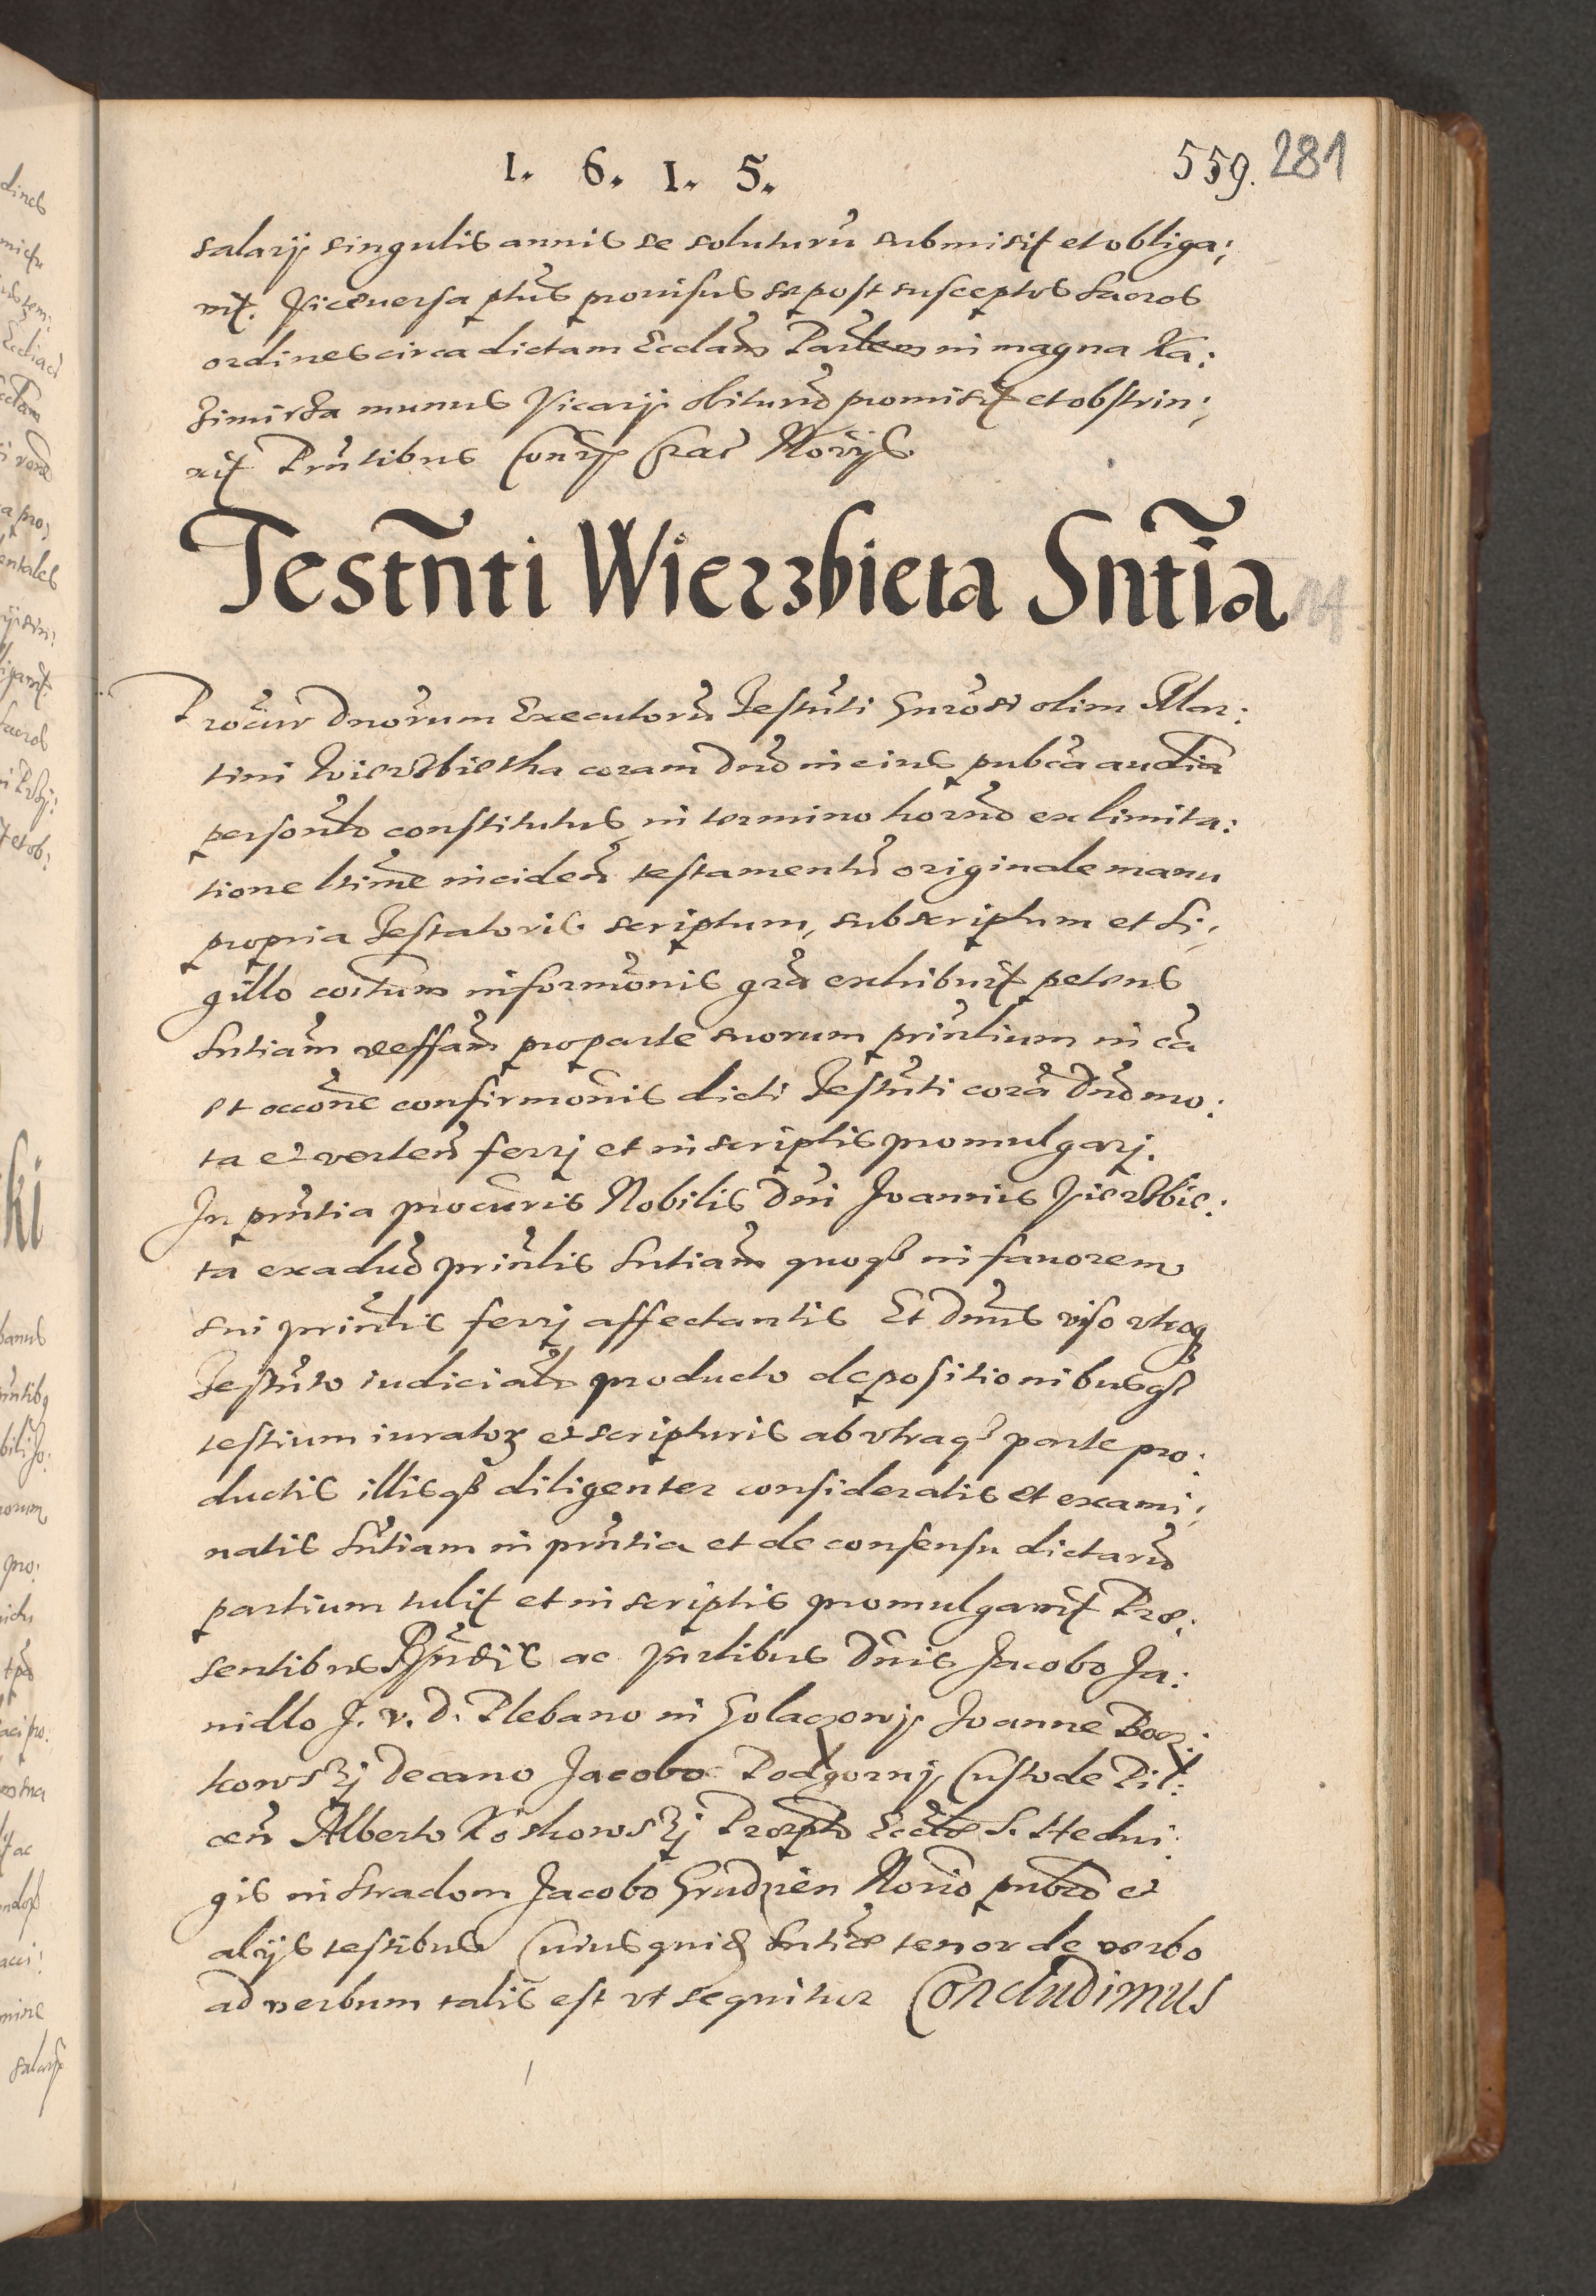 1. 6. 1. 5.
559. 281
salarij singulis annis se soluturũ submisit et obliga:
vit. Viceuersa ptus prouisus se post susceptos sacros
ordines circa dictam Eccłam Parłem in magna Ka:
zimirza munus Vicarij obiturũ promisit et obstrin:
xit Pñtibus
Testñti Wierzbieta Sntĩa
Procur Dnorum Executorũ Testñti Gnrosi olim Mar:
tini Wierzbietha coram Dño in eius pubca audia
personłr constitutus in termino horño ex limita:
tione ltime inciden testamentũ originale manu
propria Testatoris scriptum, subscriptum et si:
gillo coītum informõnis grã exhibuit petens
sntiam deffam pro parte suorum prinłium in cã
et occõne confirmõnis dicti Testñti corã Dño mo:
ta et verteñ ferrj et in scriptis promulgarj.
In pñtia procuris Nobilis Dni Joannis Vierzbie:
ta ex aduo prinłis sntiam quoqȝ in fauorem
sui prinłis ferrj affectantis Et Dñus viso vtroqȝ
Testñto iudiciałr producto depositionibusqȝ
testium iuratoꝝ et scripturis ab vtraqȝ parte pro:
ductis illisqȝ diligenter consideratis et exami:
natis sñtiam in pñtia et de consensu dictarũ
partium tulit et in scriptis promulgavit Præ:
sentibus ac partibus Dñis Jacobo Ja:
nidlo J. v. D. Plebano in Golaczowij Joanne Bor:
kowskj Decano Jacobo Podgornij Custode Pil:
ceñ Alberto Koskowskj Præpto Eccłæ S. Hedui:
gis in Stradom Jacobo Grudzien Norio pubco et
alijs testibus Cuius quidȝ sntiæ tenor de verbo
ad verbum talis est vt sequitur Concludimus